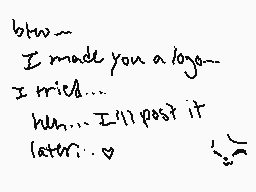 btw~
I made you a logo~
I tried...
heh... I'll post it
later... ♡